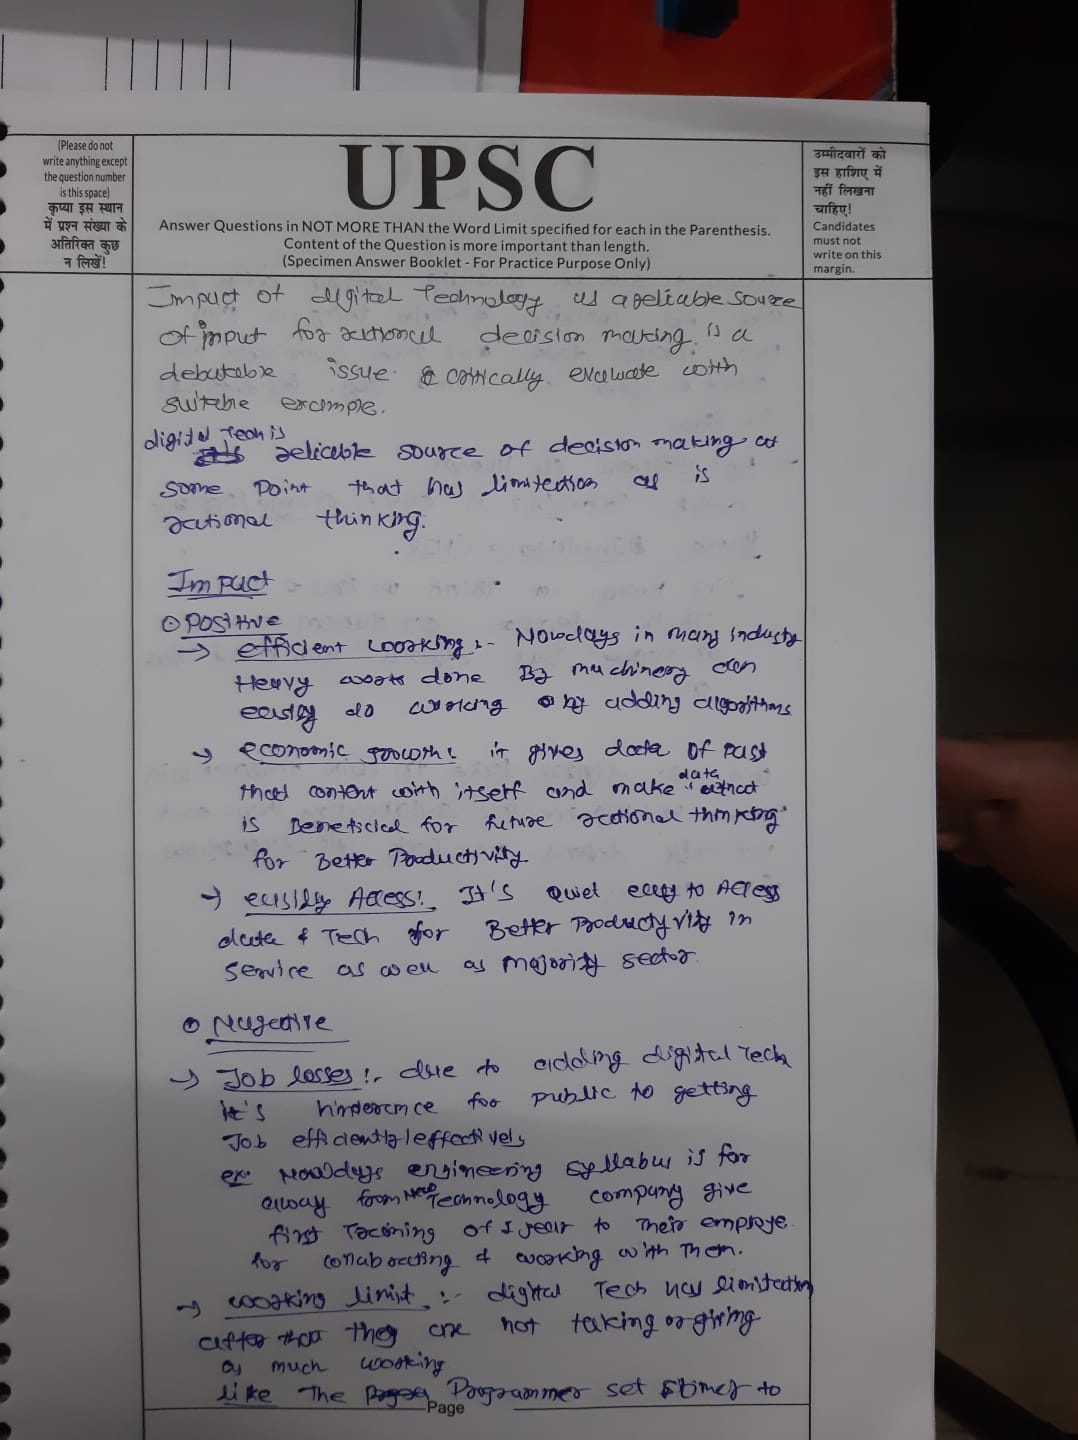 (Please do not
write anything except
the question number
is this space)
कृप्या इस स्थान
में प्रश्न संख्या के
अतिरिक्त कुछ
न लिखें!
UPSC
Answer Questions in NOT MORE THAN the Word Limit specified for each in the Parenthesis.
Content of the Question is more important than length.
(Specimen Answer Booklet - For Practice Purpose Only)
उम्मीदवारों को
इस हाशिए में
नहीं लिखना
चाहिए!
Candidates
must not
write on this
margin.
Impact of digital Technology as a reliable source
of input for rational decision making is a
debatable issue. critically evaluate with
suitable example.
digital Tech is
reliable source of decision making at
some point that has limitation as is
rational thinking.
Impact
Positive
→ efficient working :- Nowdays in many industry
Heavy works done By machinery can
easily do working by adding algorithms
→ economic growth: it gives data of past
that content with itself and make data
is Beneficial for future rational thinking
for Better Productivity.
→ easily Access: It's quiet easy to Access
data & Tech for Better Productyvity in
service as well as majority sector.
Nagative
→ Job losses :- due to adding digital Tech
it's hinderance for public to getting
Job efficiently/effectively
ex: Nowdays engineering syllabus is for
away from New Technology company give
first Traning of 1 year to their employe
for collaborating & working with Them.
→ working limit :- digital Tech has limitation
after that they are not taking or giving
as much working
like The Programmer set timer to
Page